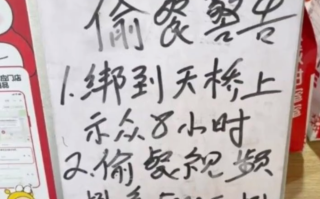 偷餐警告
1.绑到天桥上
示众8小时
2.偷餐视频